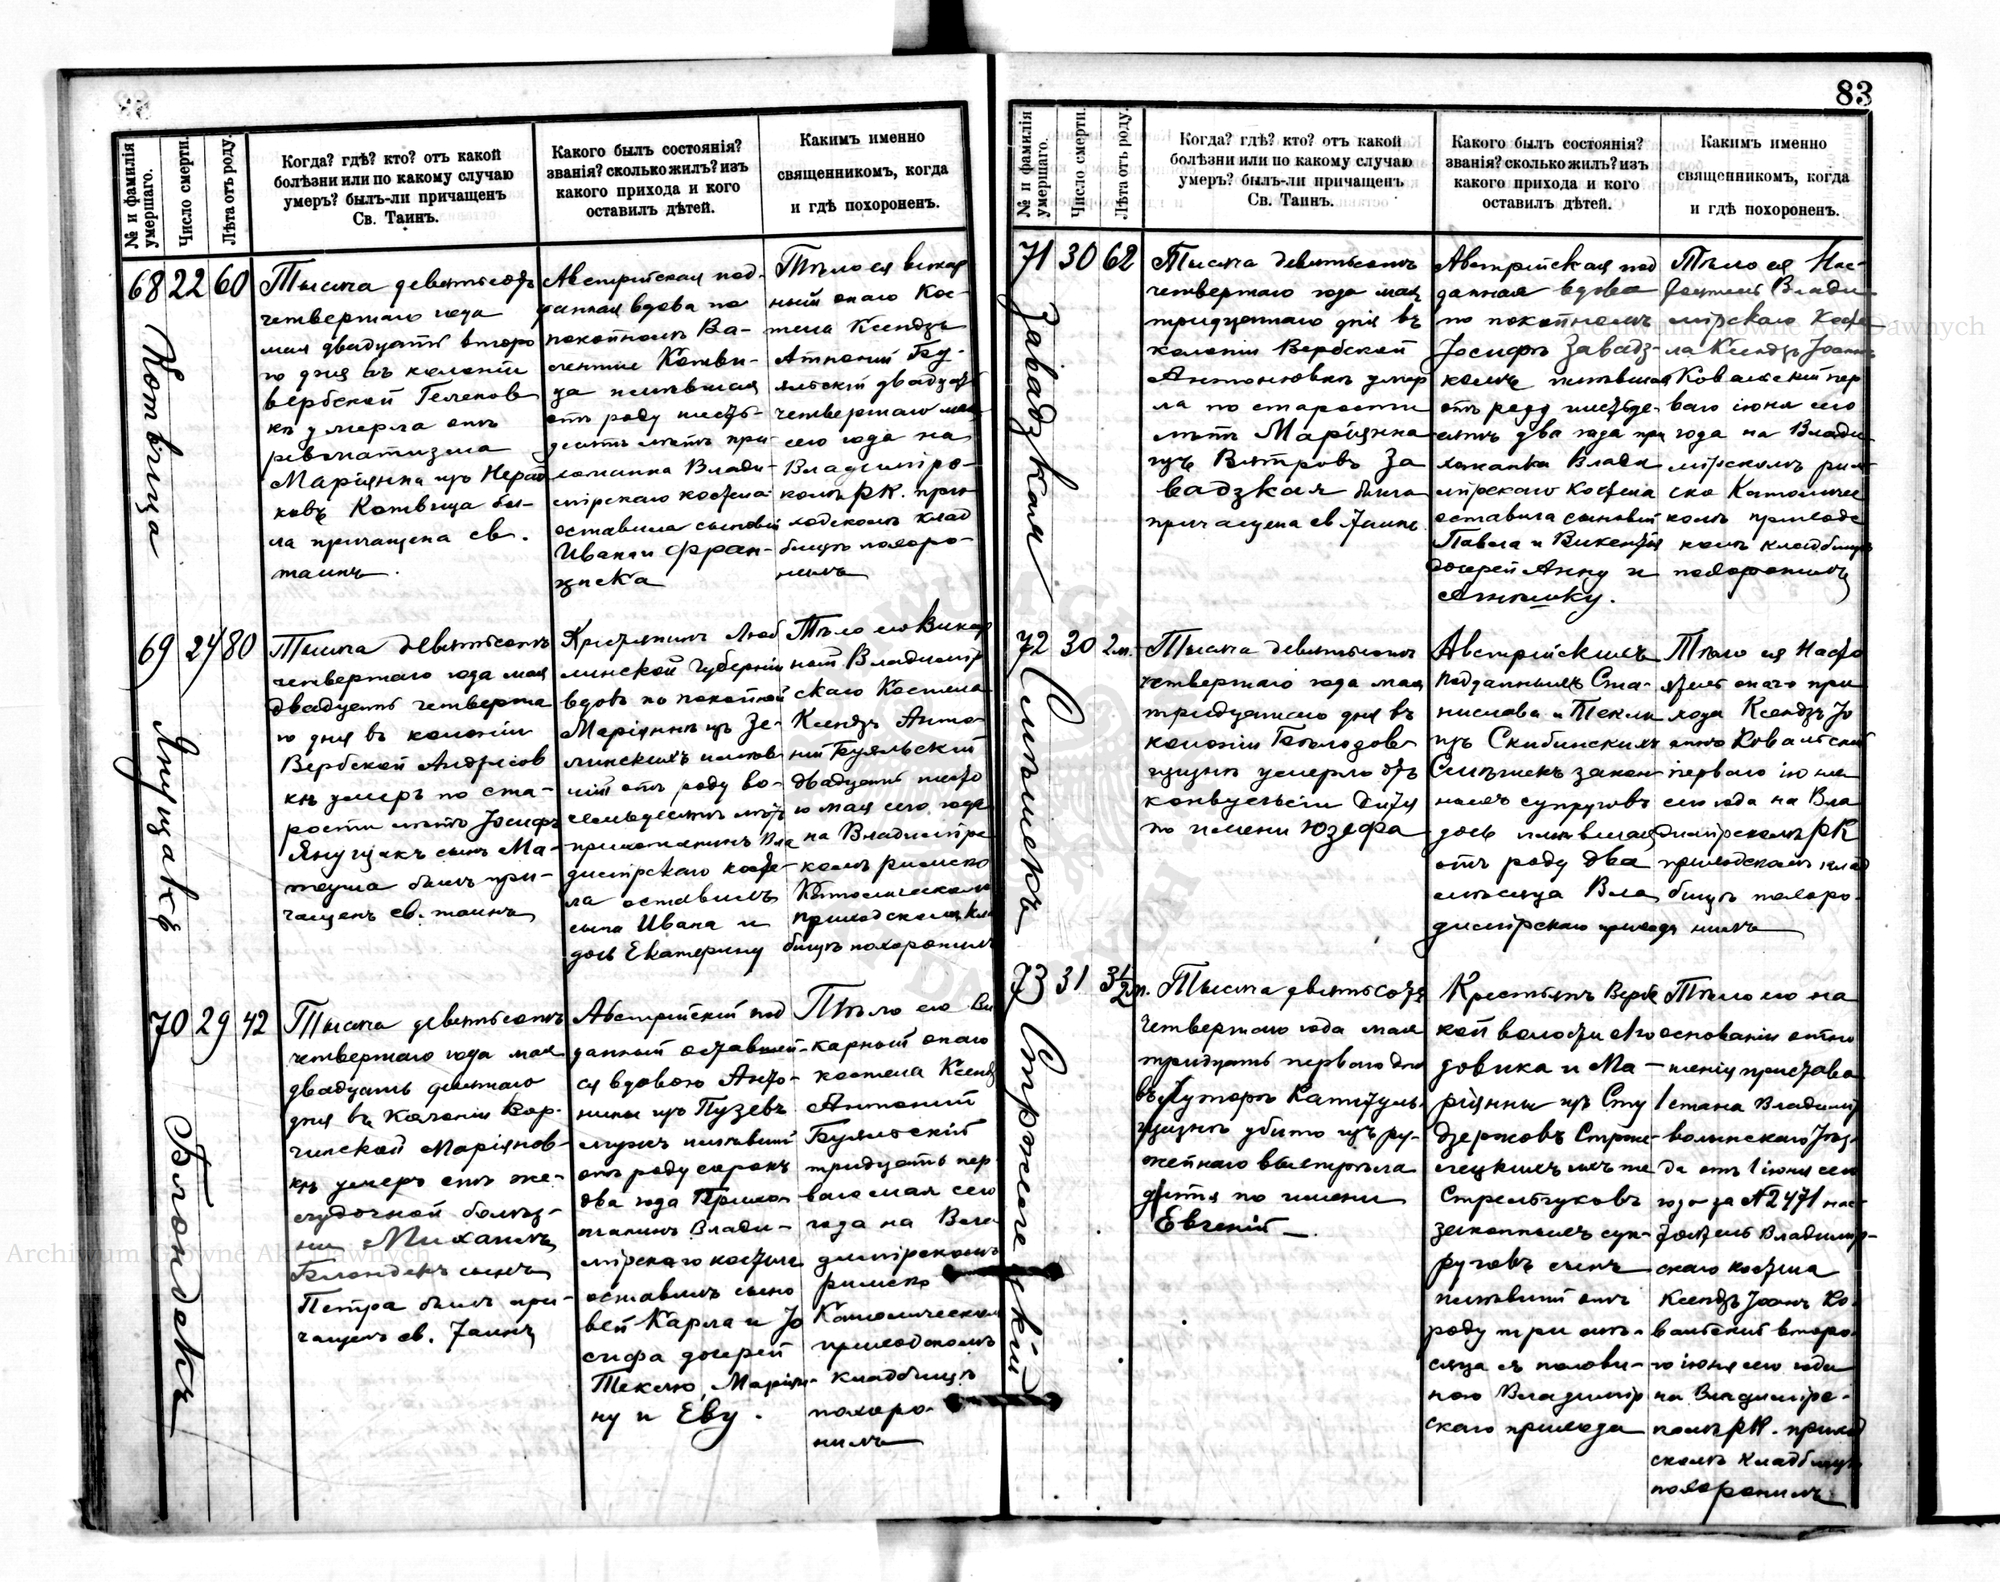 83
№ и фамилія умершаго.
Число смерти.
Лѣта отъ роду.
Когда? гдѣ? кто? отъ какой
болѣзни или по какому случаю
умеръ? былъ-ли причащенъ
Св. Таинъ.
Какого былъ состоянія?
званія? сколько жилъ? изъ
какого прихода и кого
оставилъ дѣтей.
Какимъ именно
священникомъ, когда
и гдѣ похороненъ.
68 22 60
Котвица
Тысяча девятьсотъ
четвертаго года
мая двадцать второ
го дня въ колоніи
Вербской Геленов
кѣ умерла отъ
ревматизма
Маріянна изъ
Котвица бы-
ла причащена св.
таинъ.
Австрійская под-
данная вдова по
покойномъ Ва-
лентіе Котви-
ца жившая
отъ роду шесть-
десятъ лѣтъ при-
хожанка Влади-
мірскаго костела
оставила сыновей
Ивана и Фран-
циска
Тѣло ея викар
ный онаго Кос-
тела Ксендзъ
Антоній Бу-
яльскій двадцать
четвертаго мая
сего года на
Владимірс-
комъ РК. при-
ходскомъ клад
бищѣ похоро-
нилъ
69 24 80
Янущакъ
Тысяча девятьсотъ
четвертаго года мая
двадцать четверта
го дня въ колоніи
Вербской Андресов
кѣ умеръ по ста-
рости лѣтъ Іосифъ
Янущакъ сынъ Ма-
теуша былъ при-
чащенъ св. таинъ
Крестьянинъ Люб
линской губерніи
вдовъ по покойной
Маріяннѣ изъ Зе-
линскихъ жив
шій отъ роду во-
семьдесятъ лѣтъ
прихожанинъ Вла
димірскаго косте-
ла оставилъ
сына Ивана и
дочь Екатерину
Тѣло его Викар
ный Владимір
скаго Костела
Ксендзъ Анто-
ній Буяльскій
двадцать шесто
го мая сего года
на Владимірс
комъ римско
Католическомъ
приходскомъ клад
бищѣ похоронилъ
70 29 42
Блондекъ
Тысяча девятьсотъ
четвертаго года мая
двадцать девятаго
дня въ колоніи Вор-
чинской Маріянов-
кѣ умеръ отъ же-
лудочной болѣз-
ни Михаилъ
Блондекъ сынъ
Петра былъ при-
чащенъ св. Таинъ
Австрійскій под
данный оставшій-
ся вдовою Анто-
нины изъ Пузевъ
мужъ жившій
отъ роду сорокъ
два года Прихо-
жанинъ Влади-
мірскаго костела
оставилъ сыно
вей Карла и Іо
сифа дочерей
Теклю, Маріан-
ну и Еву.
Тѣло его Ви
карный онаго
костела Ксендзъ
Антоній
Буяльскій
тридцать пер-
ваго мая сего
года на Вла
димірскомъ
римско
Католическомъ
приходскомъ
кладбищѣ
похоро-
нилъ
№ и фамилія умершаго.
Число смерти.
Лѣта отъ роду.
Когда? гдѣ? кто? отъ какой
болѣзни или по какому случаю
умеръ? былъ-ли причащенъ
Св. Таинъ.
Какого былъ состоянія?
званія? сколько жилъ? изъ
какого прихода и кого
оставилъ дѣтей.
Какимъ именно
священникомъ, когда
и гдѣ похороненъ.
71 30 62
Завадзкая
Тысяча девятьсотъ
четвертаго года мая
тридцатаго дня въ
колоніи Вербской
Антоновкѣ умер
ла по старости
лѣтъ Маріянна
изъ Вятровъ За
вадзкая была
причащена св Таинъ
Австрійская под
данная вдова
по покойномъ
Іосифѣ Завадз-
комъ жившая
отъ роду шестьде-
сятъ два года при
хожанка Влади
мірскаго Костела
оставила сыновей
Павла и Викентія
дочерей Анну и
Агнѣшку.
Тѣло ея Нас-
тоятель Влади
мірскаго Косте-
ла Ксендзъ Іоаннъ
Ковальскій пер
ваго іюня сего
года на Влади-
мірскомъ рим
ско Католичес
комъ приходс
комъ кладбищѣ
похоронилъ
72 30 2м.
Смѣшекъ
Тысяча девятьсотъ
четвертаго года мая
тридцатаго дня въ
колоніи
умерло отъ
конвульсіи дитя
по имени Юзефа
Австрійскихъ
подданныхъ Ста-
нислава и Текли
изъ Скибинскихъ
Смѣшекъ закон-
ныхъ супруговъ
дочь жившая
отъ роду два
мѣсяца Вла
димірскаго прихода
Тѣло ея Насто
ятель онаго при
хода Ксендзъ Іо
аннъ Ковальскій
перваго іюня
сего года на Вла
димірскомъ РК
приходскомъ клад
бищѣ похоро-
нилъ
73 31 3½м.
Стржелецкій
Тысяча девятьсотъ
четвертаго года мая
тридцать перваго дня
въ хуторѣ
убито изъ ру-
жейнаго выстрѣла
дитя по имени
Евгеній
Крестьянъ Верб
кой волости Лю
довика и Ма-
ріянны изъ Сту
Стрже-
лецкихъ
Стрельчуковъ
законныхъ суп-
руговъ сынъ
жившій отъ
роду три мѣ-
сяца съ полови-
ною Владимір
скаго прихода
Тѣло его на
основаніи отно
шенія пристава
1 стана Владимір
волынскаго Уѣз-
да отъ 1 іюня сего
года за №2471 нас-
тоятель Владимір-
скаго костела
Ксендзъ Іоаннъ Ко-
вальскій второ-
го іюня сего года
на Владимірс-
комъ РК. приход
скомъ кладбищѣ
похоронилъ
Archiwum Główne Akt Dawnych
Archiwum Główne Akt Dawnych